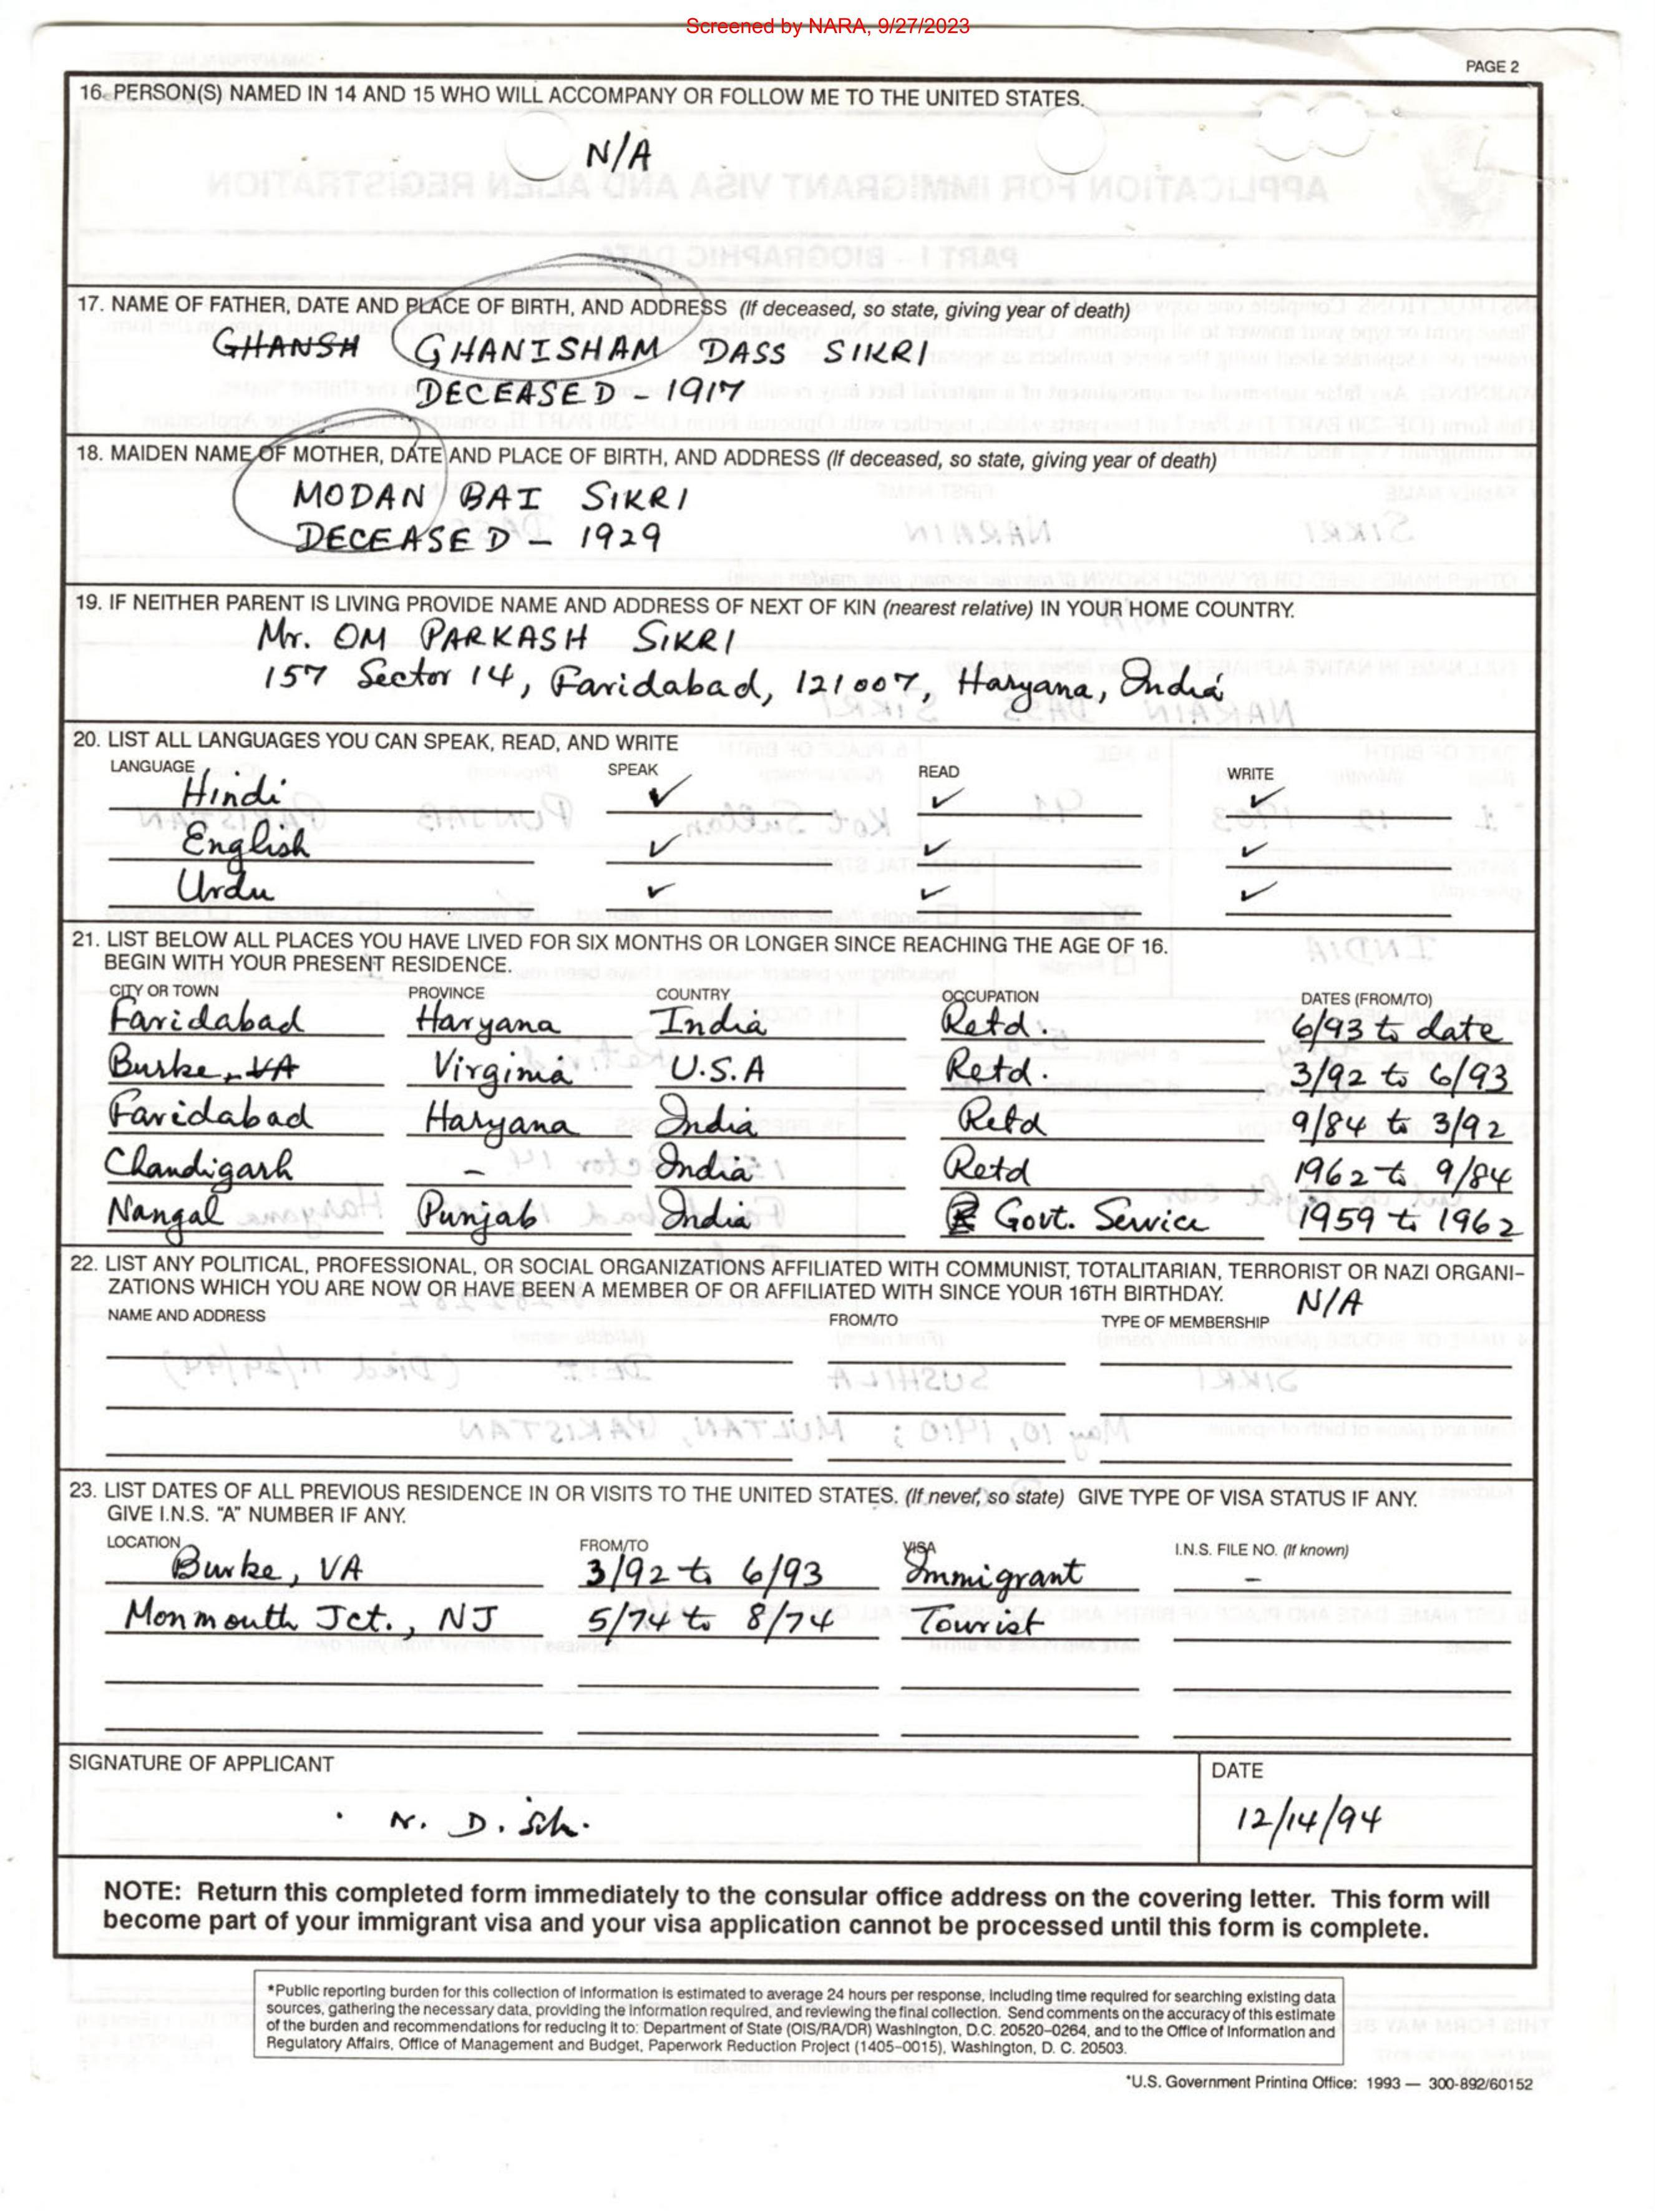 Screened by NARA, 9/27/2023
PAGE 2
16. PERSON(S) NAMED IN 14 AND 15 WHO WILL ACCOMPANY OR FOLLOW ME TO THE UNITED STATES.
N/A
17. NAME OF FATHER, DATE AND PLACE OF BIRTH, AND ADDRESS (If deceased, so state, giving year of death)
GHANSH GHANISHAM DASS SIKRI
DECEASED - 1917
18. MAIDEN NAME OF MOTHER, DATE AND PLACE OF BIRTH, AND ADDRESS (If deceased, so state, giving year of death)
MODAN BAI SIKRI
DECEASED - 1929
19. IF NEITHER PARENT IS LIVING PROVIDE NAME AND ADDRESS OF NEXT OF KIN (nearest relative) IN YOUR HOME COUNTRY.
Mr. OM PARKASH SIKRI
157 Sector 14, Faridabad, 121007, Haryana, India
20. LIST ALL LANGUAGES YOU CAN SPEAK, READ, AND WRITE
LANGUAGE SPEAK READ WRITE
Hindi ✓ ✓ ✓
English ✓ ✓ ✓
Urdu ✓ ✓ ✓
21. LIST BELOW ALL PLACES YOU HAVE LIVED FOR SIX MONTHS OR LONGER SINCE REACHING THE AGE OF 16.
BEGIN WITH YOUR PRESENT RESIDENCE.
CITY OR TOWN PROVINCE COUNTRY OCCUPATION DATES (FROM/TO)
Faridabad Haryana India Retd. 6/93 to date
Burke, VA Virginia U.S.A Retd. 3/92 to 6/93
Faridabad Haryana India Retd 9/84 to 3/92
Chandigarh - India Retd 1962 to 9/84
Nangal Punjab India Govt. Service 1959 to 1962
22. LIST ANY POLITICAL, PROFESSIONAL, OR SOCIAL ORGANIZATIONS AFFILIATED WITH COMMUNIST, TOTALITARIAN, TERRORIST OR NAZI ORGANI-
ZATIONS WHICH YOU ARE NOW OR HAVE BEEN A MEMBER OF OR AFFILIATED WITH SINCE YOUR 16TH BIRTHDAY. N/A
NAME AND ADDRESS FROM/TO TYPE OF MEMBERSHIP
23. LIST DATES OF ALL PREVIOUS RESIDENCE IN OR VISITS TO THE UNITED STATES. (If never, so state) GIVE TYPE OF VISA STATUS IF ANY.
GIVE I.N.S. "A" NUMBER IF ANY.
LOCATION FROM/TO VISA I.N.S. FILE NO. (If known)
Burke, VA 3/92 to 6/93 Immigrant -
Monmouth Jct., NJ 5/74 to 8/74 Tourist
SIGNATURE OF APPLICANT DATE
N. D. 12/14/94
NOTE: Return this completed form immediately to the consular office address on the covering letter. This form will
become part of your immigrant visa and your visa application cannot be processed until this form is complete.
*Public reporting burden for this collection of information is estimated to average 24 hours per response, including time required for searching existing data
sources, gathering the necessary data, providing the information required, and reviewing the final collection. Send comments on the accuracy of this estimate
of the burden and recommendations for reducing it to: Department of State (OIS/RA/DR) Washington, D.C. 20520-0264, and to the Office of Information and
Regulatory Affairs, Office of Management and Budget, Paperwork Reduction Project (1405-0015), Washington, D. C. 20503.
*U.S. Government Printing Office: 1993 — 300-892/60152